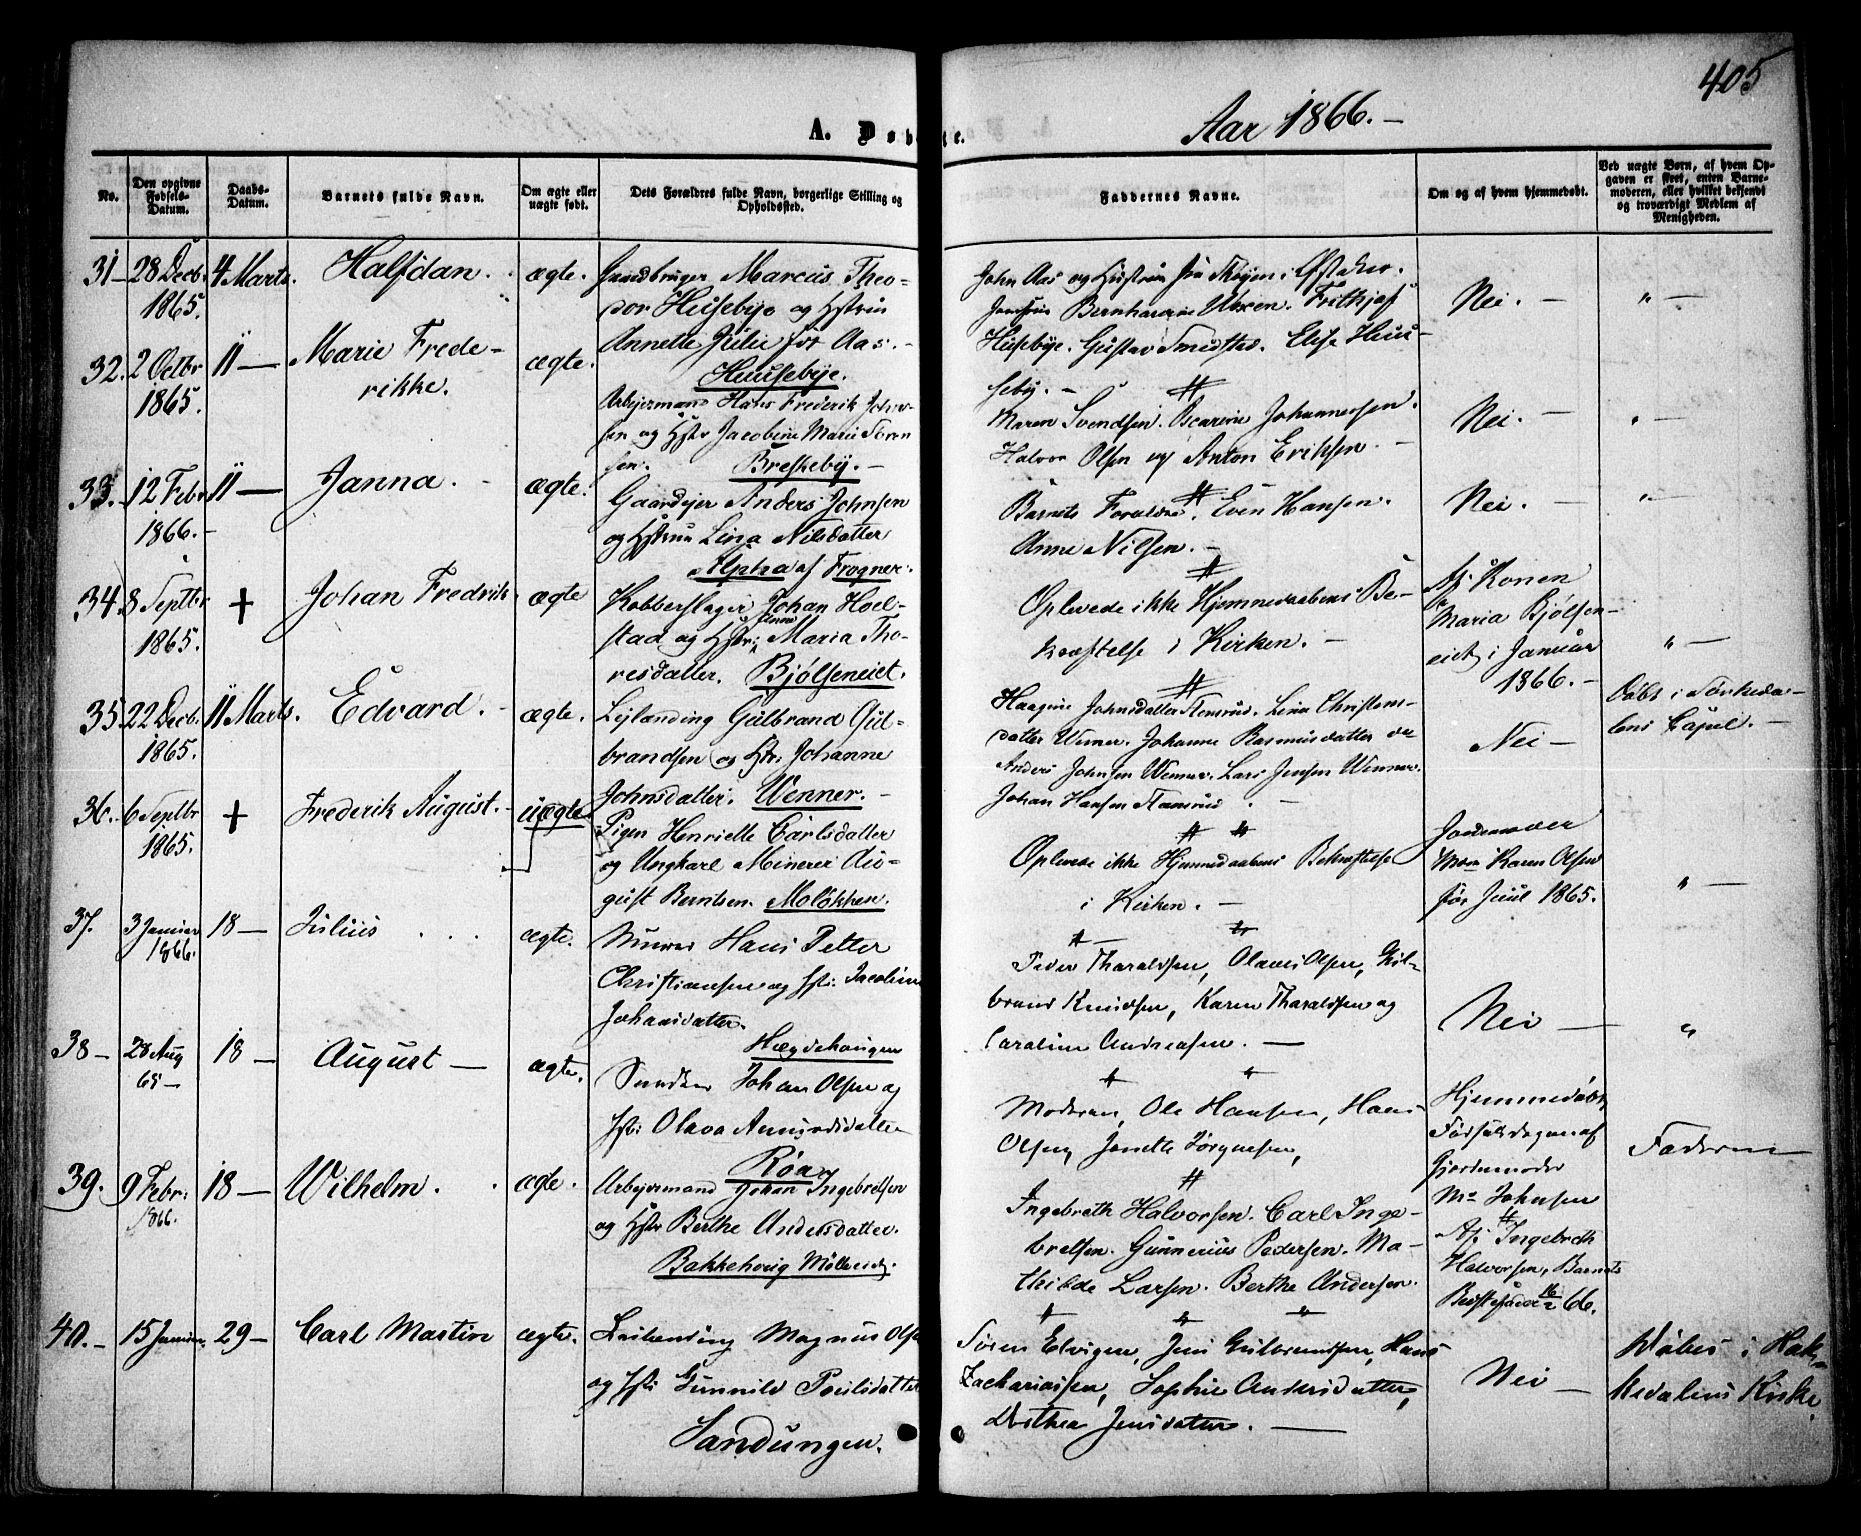 405
A. Døbte.
Aar 1866.-
No.
Den opgivne Fødsels-Datum.
Daabs-Datum.
Barnets fulde Navn.
Om ægte eller uægte født.
Dets Forældres fulde Navn, borgerlige Stilling og Opholdssted.
Faddernes Navne.
Om og af hvem hjemmedøbt.
Ved uægte Børn, af hvem Opgaven er skeet, enten Barnemoderen, eller hvilket bekjendt og troværdigt Medlem af Menigheden.
31- 28 Decb. 1865. 4 Marts. Halfdan. ægte.
Gaardbruger Marcus Theo-
dor Husebye og Hstru
Annette Julie før Aas.-
Huusebye.
John Aas og Hustru fra Thøjen i Østaker.
Bernhardine Frithjof
Husebye. Gustav Smedsted. Elise Huu-
seby.-
Nei.- "-
32. 2 Octbr 1865. 11- Marie Frede-
rikke. ægte.
Arbejdsmand Hans Frederik Johan-
sen og Hstr Jacobine Marie Soren
sen. Breskeby.-
Maren Svendsen. Oscarine Johannesen.
Halvor Olsen og Anton Eriksen.-
Nei.- "-
33. 12 Febr 1866.- 11- Janna.- ægte.
Gaardejer Anders Johnsen
og Hstru Lina Nilsdatter
Alpha af Frogner.
Barnets Forældre. Even Hansen.
Anne Nilsen.-
Nei.- "-
34. 8 Septbr 1865. + Johan Fredrik. ægte
Kobberslager Johan Hoel-
stad og Hstr: Maria Tho-
resdatter. Bjølseneiet.
Oplevede ikke Hjemmedaabens Be-
kræftelse i Kirken.-
Af Konen
Maria Bjølsen-
eiet i Januar
1866.-
"-
35. 22 Decb. 1865. 11 Marts. Edvard.- ægte.
Lejlænding Gulbrand Gul-
brandsen og Hstr. Johanne
Johnsdatter. Wenner.-
Haagine Johnsdatter Stamsrud. Lina Christens-
datter Wenner. Johanne Rasmusdatter
Anders Johnsen Wenner. Lars Jensen Wenner.
Johan Hansen Stamsrud.-
Nei-
Døbt i Sørkeda-
lens Capel.-
36. 6 Septbr 1865. + Frederik August.- uægte
Pigen Henriette Carlsdatter
og Ungkarl Minerer Au-
gust Berntsen. Moløkken.
Oplevede ikke Hjemmedaabens Bekræftelse
i Kirken.-
Jordemoder
Karen Olsen
før Juul 1865.
"-
37. 3 Januar 1866. 18- Julius ... ægte.
Murer Hans Petter
Christiansen og Hstr: Jacobine
Johansdatter.
Hægdehaugen
Peder Tharaldsen, Olaves Olsen, Gul-
brand Knudsen, Karen Tharaldsen og
Caroline Andreasen.-
Nei- "
38- 28 Aug 65- 18- August- ægte.
Johan Olsen og
Hstr: Olava Amundsdatter
Røa
Moderen, Ole Hansen, Hans
Olsen, Janette Jørgensen,
Hjemmedøbt
Fødselsdagen af
Gjordemoder
Johnsen
Faderen
39. 9 Febr. 1866. 18- Wilhelm. ægte.
Arbejdsmand Johan Ingebretsen
og Hstr Berthe Andersdatter.
Bakkehoug Mølleeiet.
Ingebreth Halvorsen. Carl Inge-
bretsen. Gunnerius Pedersen. Ma-
thilde Larsen. Berthe Andersen.
Af Ingebreth
Halvorsen, Barnets
Bedstefader 16/2 66.
40.- 15 Januar. 29- Carl Martin ægte.
Leilending Magnus Olsen
og Hstr: Gunnild Poulsdatter
Sandungen.
Søren Elvigen, Jens Gulbrandsen, Hans
Zachariassen, Sophie Andersdatter,
Dorthea Jensdatter.-
Nei-
Døbt i Hak-
kedalens Kirke.